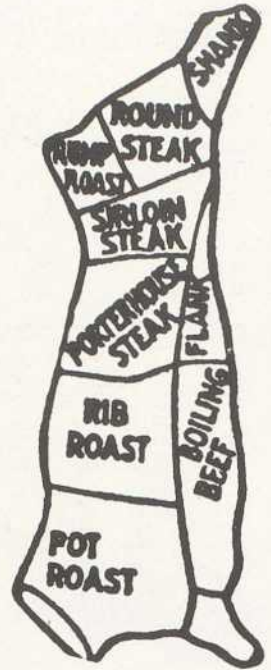 SHANK
ROUND
STEAK
RUMP
ROAST
SIRLOIN
STEAK
PORTERHOUSE
STEAK
FLANK
RIB
ROAST
BOILING
BEEF
POT
ROAST